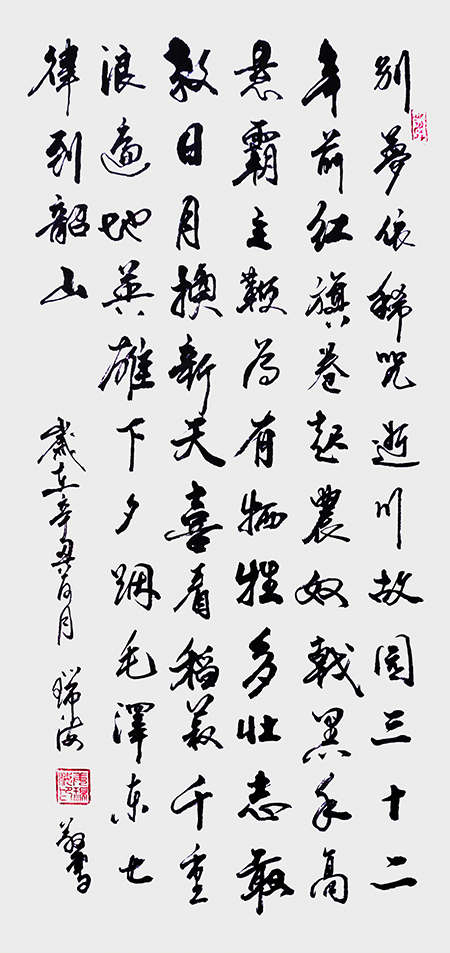 别夢依稀咒逝川故園三十二
年前红旗卷起農奴戟黑手高
悬霸主鞭为有牺牲多壮志敢
教日月換新天喜看稻菽千重
浪遍地英雄下夕烟毛澤东七
律到韶山
歲在辛丑月 瑞海 敬書